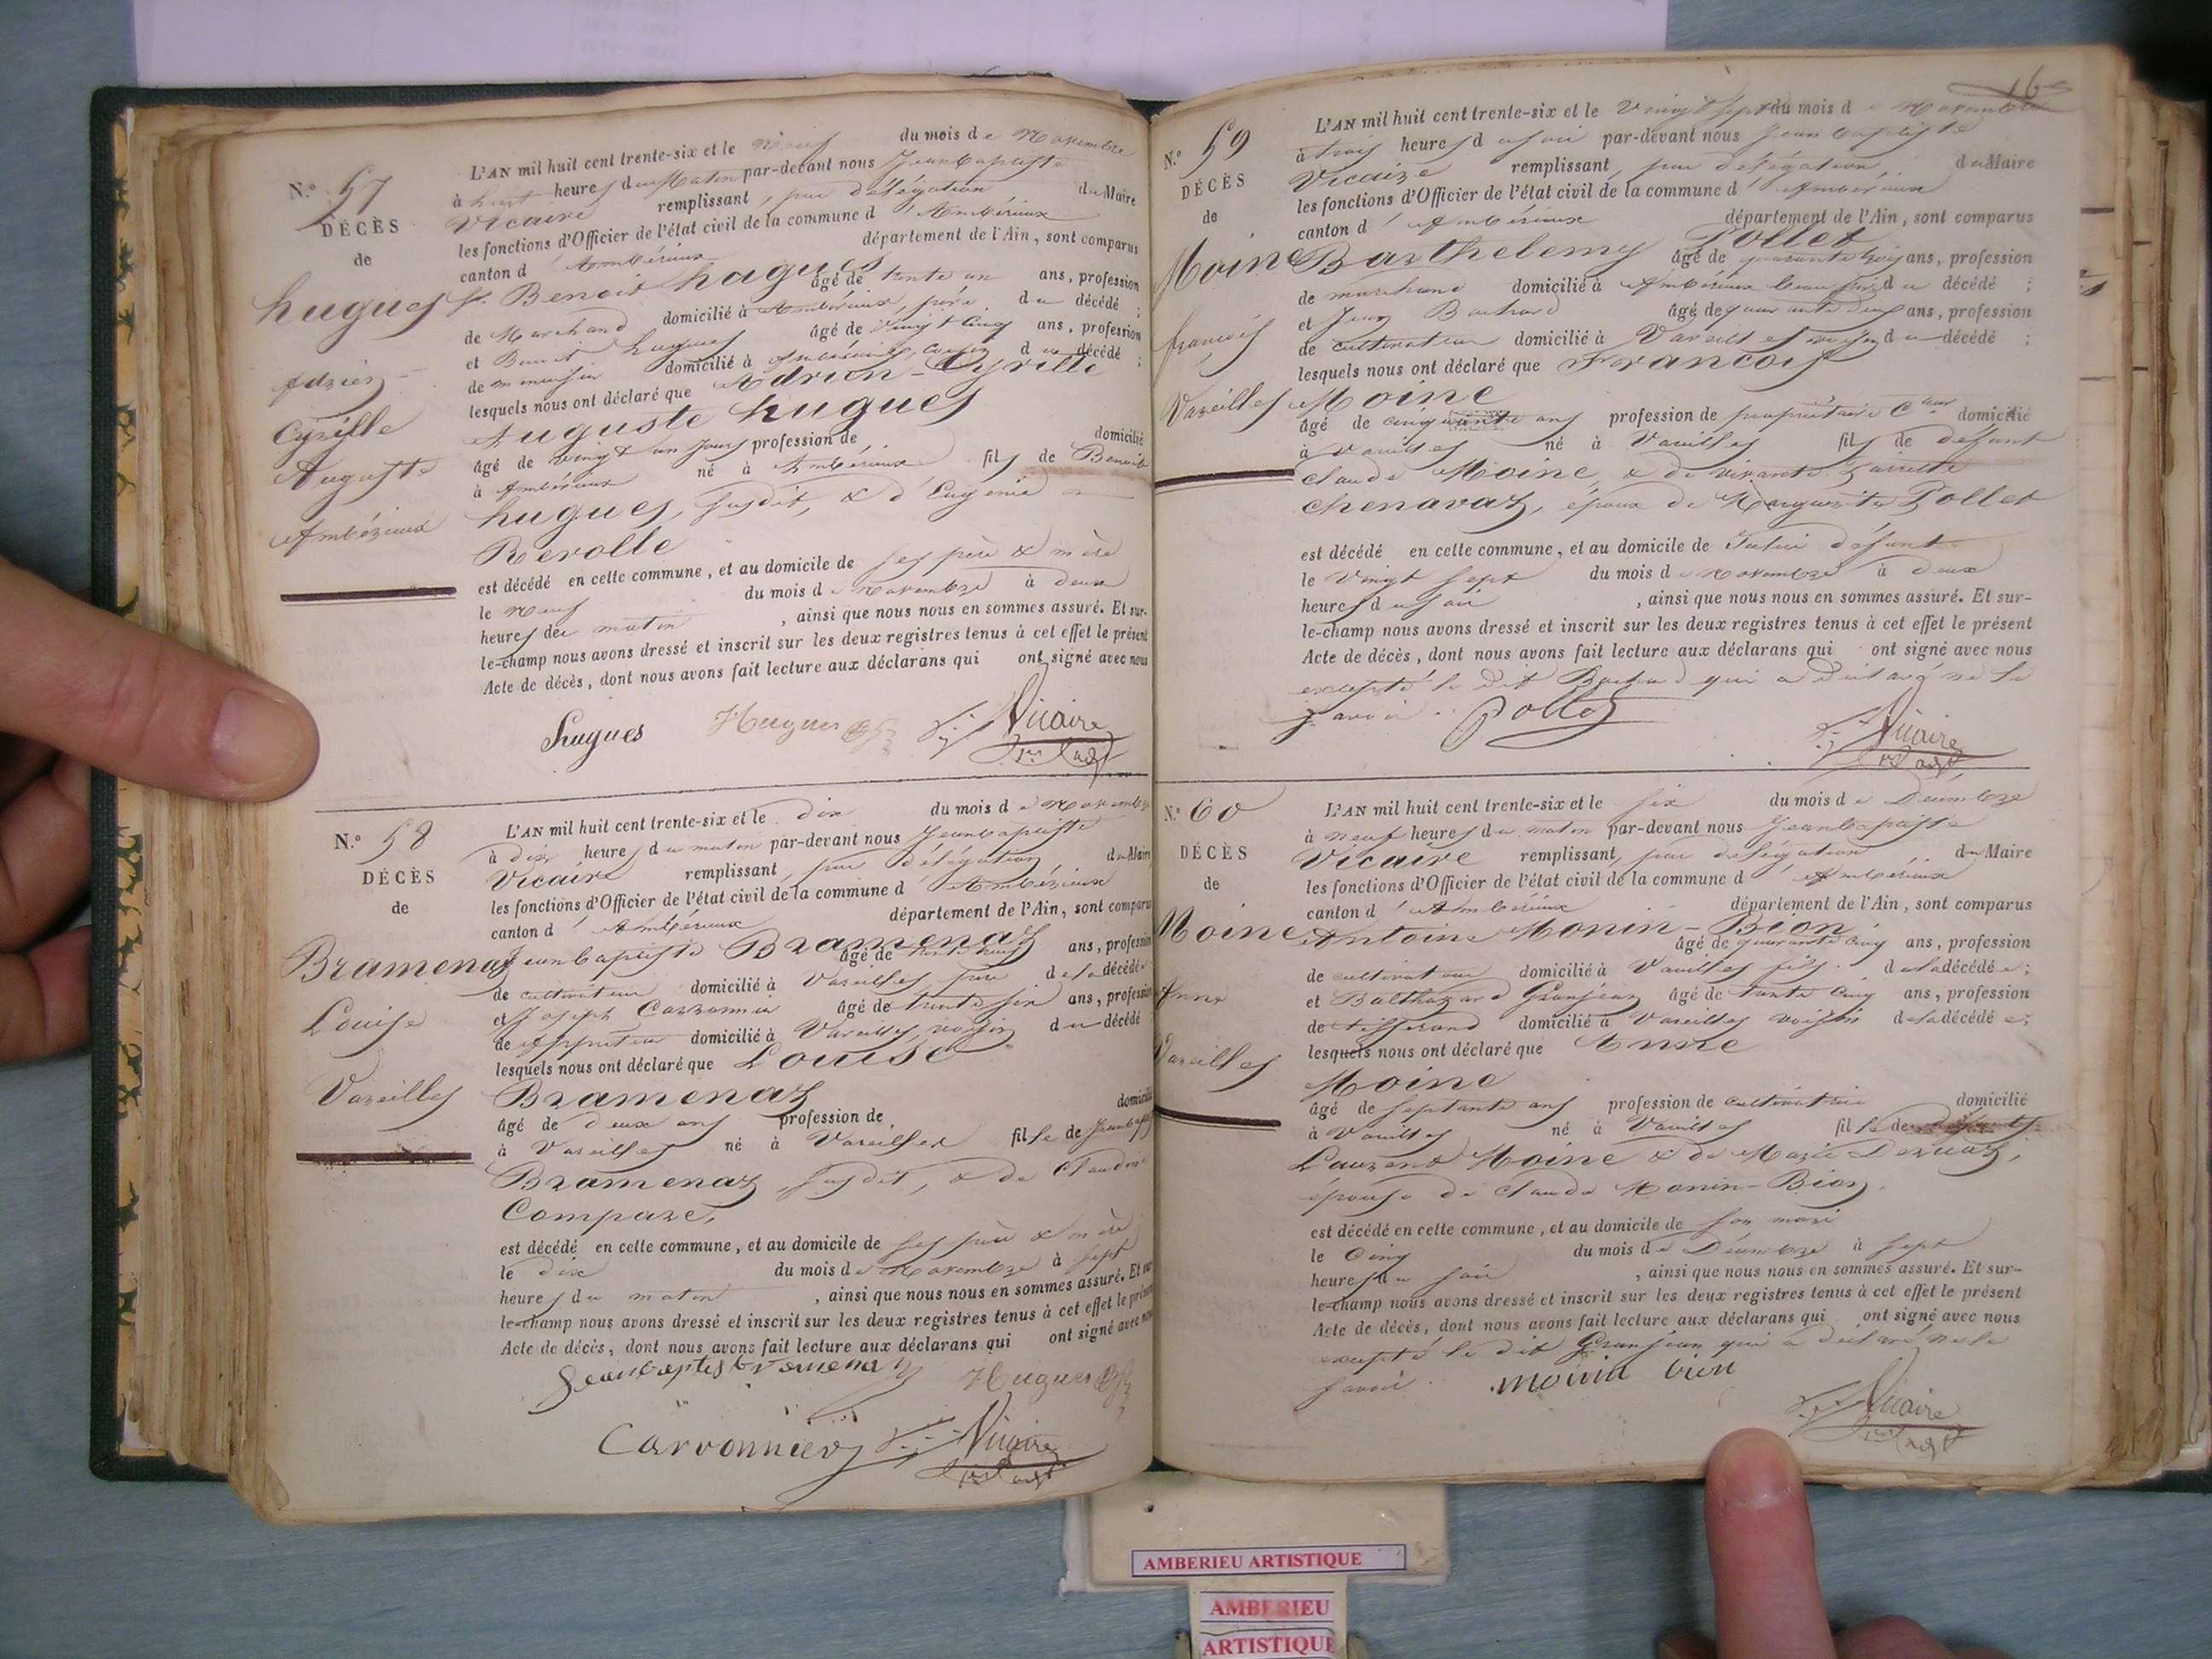 N.° 57
DÉCÈS
de
hugues
Adrien
Cyrille
Auguste
Ambérieux
L'AN mil huit cent trente-six et le neuf du mois de Novembre
à huit heures du Matin par-devant nous Jean Baptiste
Vicaire remplissant, par délégation du Maire
les fonctions d'Officier de l'état civil de la commune d'Ambérieux
canton d'Ambérieux département de l'Ain, sont comparus
Sr. Benoit hugues âgé de trente un ans, profession
de Marchand domicilié à Ambérieux, père du décédé ;
et Benoit hugues âgé de vingt cinq ans, profession
de menuisier domicilié à Ambérieux, cousin du décédé ;
lesquels nous ont déclaré que Adrien-Cyrille
Auguste hugues
âgé de vingt un jours profession de domicilié
à Ambérieux né à Ambérieux fils de Benoit
hugues, susdit, & d'Eugénie
Revolle
est décédé en cette commune, et au domicile de ses père & mère
le neuf du mois de Novembre à deux
heures du matin, ainsi que nous nous en sommes assuré. Et sur-
le-champ nous avons dressé et inscrit sur les deux registres tenus à cet effet le présent
Acte de décès, dont nous avons fait lecture aux déclarans qui ont signé avec nous
hugues Hugues Vicaire
N.° 58
DÉCÈS
de
Bramenaz
Louise
Vareilles
L'AN mil huit cent trente-six et le dix du mois de Novembre
à dix heures du matin par-devant nous Jean Baptiste
Vicaire remplissant, par délégation, du Maire
les fonctions d'Officier de l'état civil de la commune d'Ambérieux
canton d'Ambérieux département de l'Ain, sont comparus
Jean Baptiste Bramenaz âgé de trente neuf ans, profession
de cultivateur domicilié à Vareilles père de la décédée
et Joseph Carronnier âgé de trente six ans, profession
de domicilié à Vareilles, voisin du décédé
lesquels nous ont déclaré que Louise
Bramenaz
âgé de deux ans profession de domicilié
à Vareilles né à Vareilles fille de Jean Baptiste
Bramenaz, susdit, & de Claudine
Compare,
est décédé en cette commune, et au domicile de ses père & mère
le dix du mois de Novembre à sept
heures du matin, ainsi que nous nous en sommes assuré. Et sur-
le-champ nous avons dressé et inscrit sur les deux registres tenus à cet effet le présent
Acte de décès, dont nous avons fait lecture aux déclarans qui ont signé avec nous
Jean baptiste bramenaz Hugues
Carronnier Vicaire
16
N.° 59
DÉCÈS
de
Moine
françois
Vareilles
L'AN mil huit cent trente-six et le Vingt sept du mois de Novembre
à trois heures du soir par-devant nous Jean Baptiste
Vicaire remplissant, par délégation, du Maire
les fonctions d'Officier de l'état civil de la commune d'Ambérieux
canton d'Ambérieux département de l'Ain, sont comparus
Barthelemy Pollet âgé de quarante trois ans, profession
de marchand domicilié à Ambérieux beau frère du décédé ;
et Jean Bachod âgé de quarante deux ans, profession
de cultivateur domicilié à Vareilles et voisin du décédé ;
lesquels nous ont déclaré que François
Moine
âgé de cinquante ans profession de propriétaire domicilié
à Vareilles né à Vareilles fils de défunt
Claude Moine, & de vivante
Chenavaz, époux de Marguerite Pollet
est décédé en cette commune, et au domicile de défunt
le Vingt sept du mois de Novembre à deux
heures du soir, ainsi que nous nous en sommes assuré. Et sur-
le-champ nous avons dressé et inscrit sur les deux registres tenus à cet effet le présent
Acte de décès, dont nous avons fait lecture aux déclarans qui ont signé avec nous
excepté le dit Bachod qui a déclaré ne le
savoir. Pollet Vicaire
N.° 60
DÉCÈS
de
Moine
Anne
Vareilles
L'AN mil huit cent trente-six et le six du mois de Décembre
à neuf heures du matin par-devant nous Jean Baptiste
Vicaire remplissant, par délégation, du Maire
les fonctions d'Officier de l'état civil de la commune d'Ambérieux
canton d'Ambérieux département de l'Ain, sont comparus
Antoine Monin-Bion âgé de quarante cinq ans, profession
de cultivateur domicilié à Vareilles fils de la décédée ;
et Balthazard Granjean âgé de trente cinq ans, profession
de tisserand domicilié à Vareilles voisin de la décédée ;
lesquels nous ont déclaré que Anne
Moine
âgé de septante ans profession de cultivatrice domicilié
à Vareilles né à Vareilles fille de
Laurent Moine & de Marie Deruaz,
épouse de Claude Monin-Bion,
est décédé en cette commune, et au domicile de son mari
le Cinq du mois de Décembre à sept
heures du soir, ainsi que nous nous en sommes assuré. Et sur-
le-champ nous avons dressé et inscrit sur les deux registres tenus à cet effet le présent
Acte de décès, dont nous avons fait lecture aux déclarans qui ont signé avec nous
excepté le dit Granjean qui a déclaré ne le
savoir. monin bion Vicaire
AMBERIEU ARTISTIQUE
AMBERIEU
ARTISTIQUE